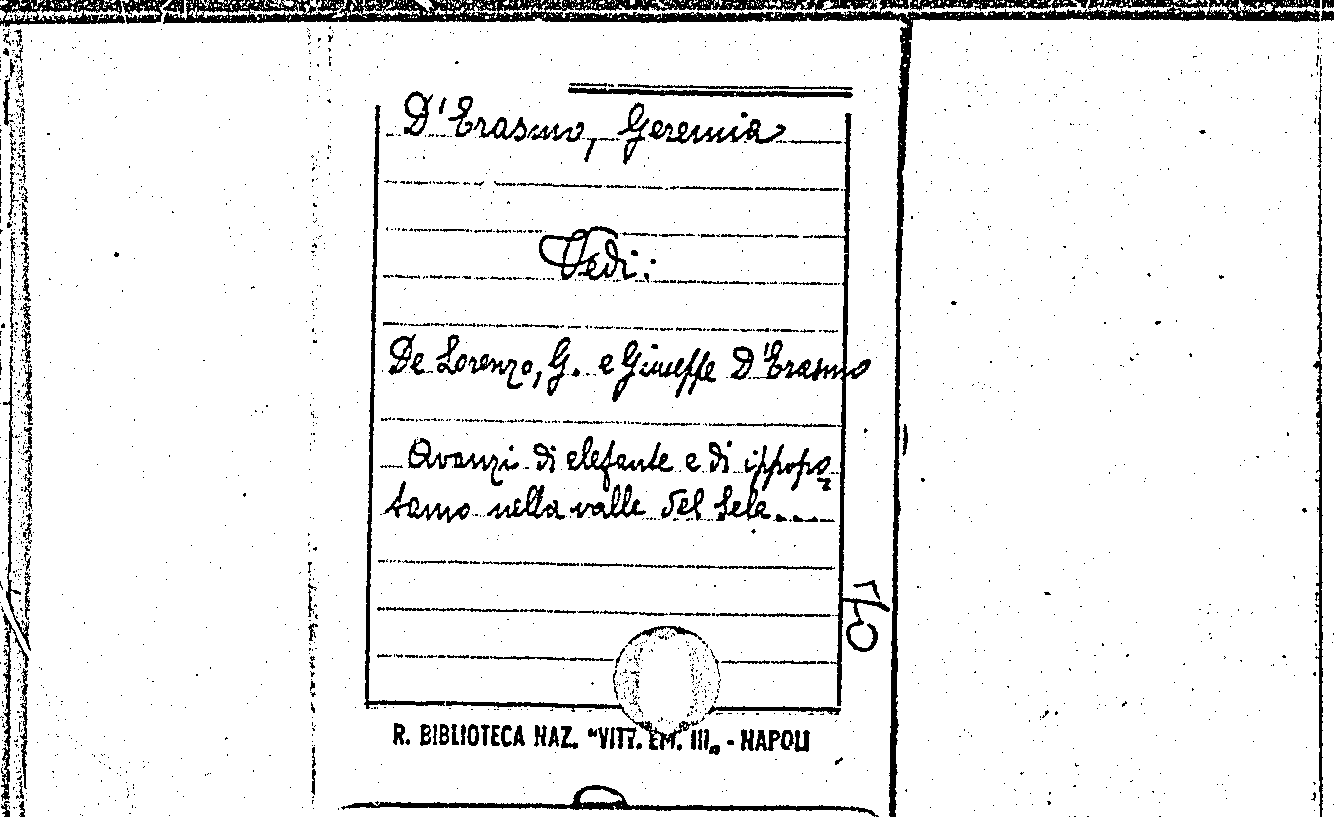 D'Erasmo, Geremia
Vedi:
De Lorenzo, G. e Giuseppe D'Erasmo
Avanzi di elefante e di ippopo-
tamo nella valle del Sele....
R. BIBLIOTECA NAZ. "VITT. EM. III„ - NAPOLI